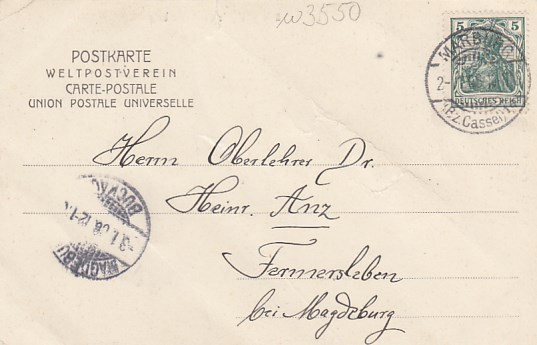 w3550
POSTKARTE
WELTPOSTVEREIN
CARTE-POSTALE
UNION POSTALE UNIVERSELLE
5 5
DEUTSCHES REICH
MARBURG
(Bz.Cassel)
Herrn Oberlehrer Dr.
Heinr. Anz
Fermersleben
bei Magdeburg
BUCKAU
-3.1.08.12-1.
MAGDEBU